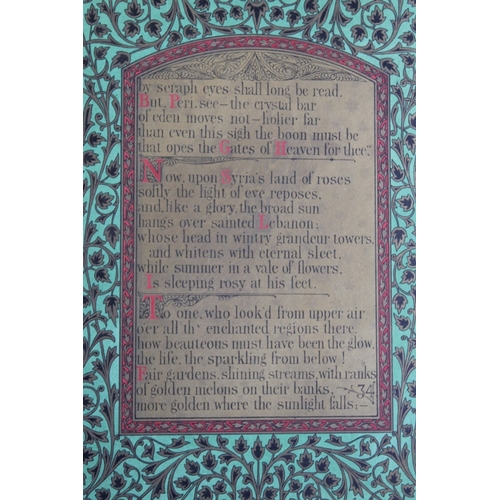 by seraph eyes shall long be read.
But, Peri, see—the crystal bar
of eden moves not—holier far
than even this sigh the boon must be
that opes the Gates of Heaven for thee."
Now, upon Syria's land of roses
softly the light of eve reposes,
and, like a glory, the broad sun
hangs over sainted Lebanon;
whose head in wintry grandeur towers,
and whitens with eternal sleet,
while summer in a vale of flowers,
Is sleeping rosy at his feet.
To one, who look'd from upper air
o'er all th' enchanted regions there,
how beauteous must have been the glow,
the life, the sparkling from below!
Fair gardens, shining streams, with ranks
of golden melons on their banks,
34
more golden where the sunlight falls;—